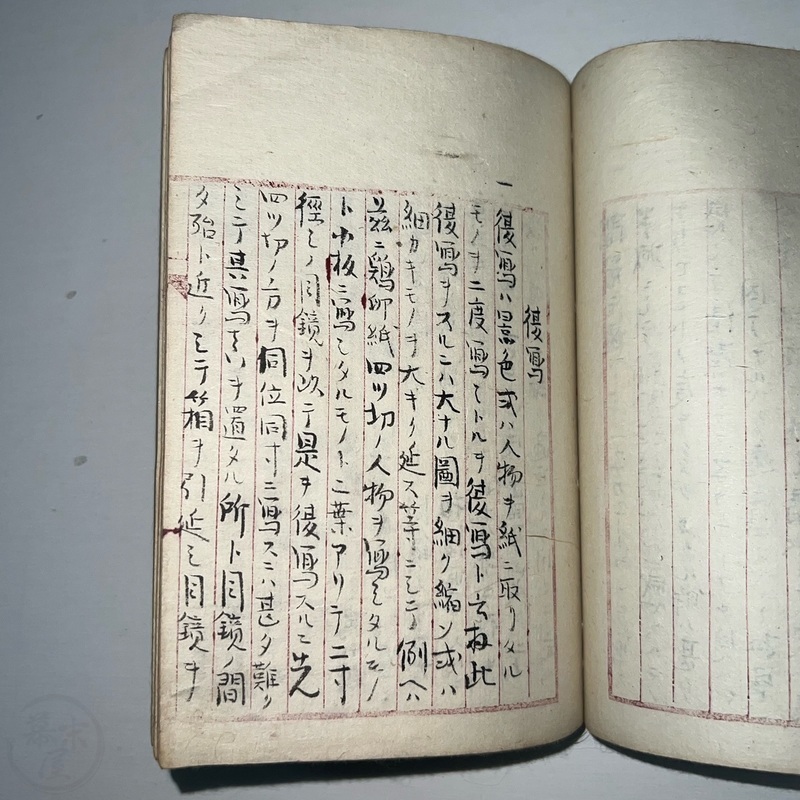 復寫
一 復寫ハ景色或ハ人物ヲ紙ニ取リタル
モノヲ二度寫シトルヲ復寫ト云扨此
復寫ヲスルニハ大ナル圖ヲ細ク縮ン或ハ
細カキモノヲ大キク延ス等ニシテ例ヘハ
茲ニ鶏卵紙四ツ切ノ人物ヲ寫シタルモノ
ト小板ニ寫シタルモノト二葉アリテ二寸
徑シノ目鏡ヲ以テ是ヲ復寫スルニ先
四ツ切ノ方ヲ同位同寸ニ寫スニハ甚タ難ク
シテ其寫真ヲ置タル所ト目鏡ノ間
タ殆ト近クシテ箱ヲ引延シ目鏡ヲ
幕末屋